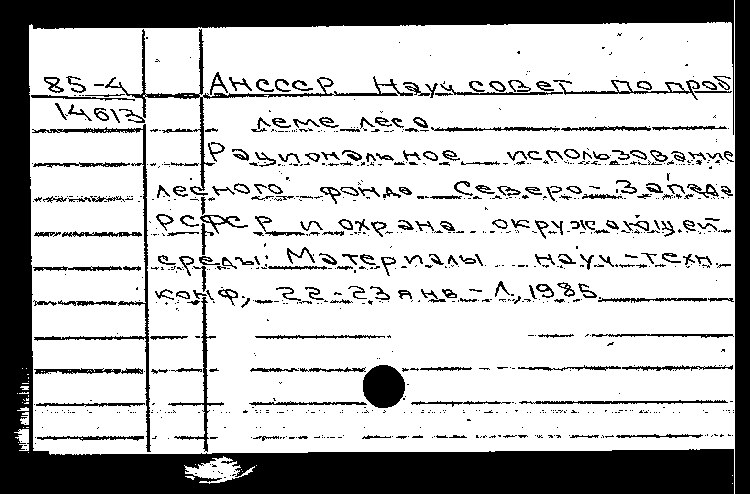 85-4 АНСССР Науч совет по проб
14613 леме леса
Рациональное использование
лесного фонда Северо-Запада
РСФСР и охрана окружающей
среды: Материалы науч-техн
конф, 22-23 янв - Л, 1985